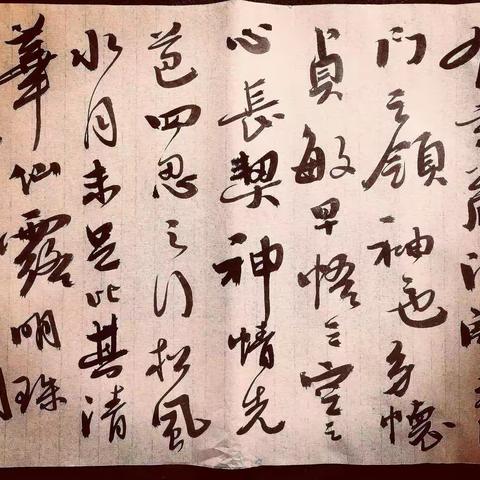 有玄奘法師
門之領袖也幼懷
貞敏早悟三空之
心長契神情先
苞四忍之行松風
水月未足比其清
華仙露明珠